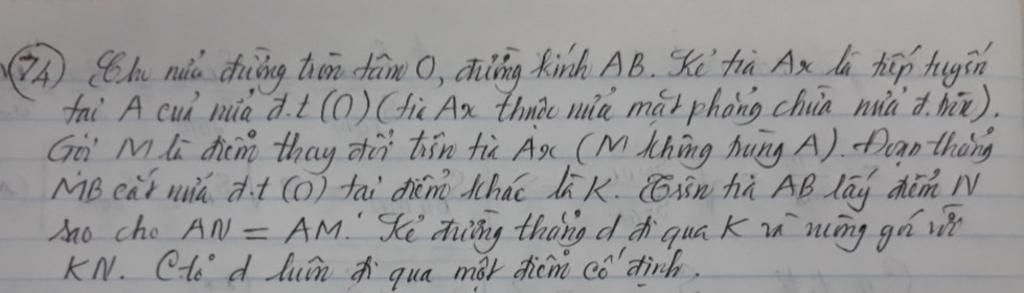 74) Cho nửa đường tròn tâm O, đường kính AB. Kẻ tia Ax là tiếp tuyến
tại A của nửa đ.t (O) (tia Ax thuộc nửa mặt phẳng chứa nửa đ.tròn).
Gọi M là điểm thay đổi trên tia Ax (M không trùng A). Đoạn thẳng
MB cắt nửa đ.t (O) tại điểm khác là K. Trên tia AB lấy điểm N
sao cho AN = AM. Kẻ đường thẳng d đi qua K và vuông góc với
KN. C/tỏ d luôn đi qua một điểm cố định.